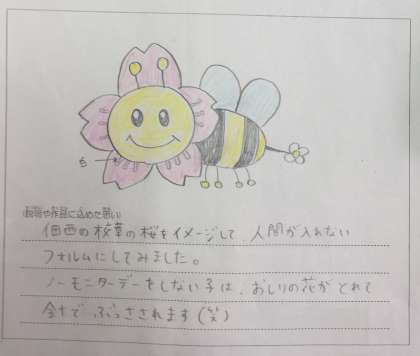 表現や作品に込めた思い
佃西の校章の桜をイメージして、人間が入れない
フォルムにしてみました。
ノーモニターデーをしない子は、おしりの花がとれて
針で ぶっさされます(笑)